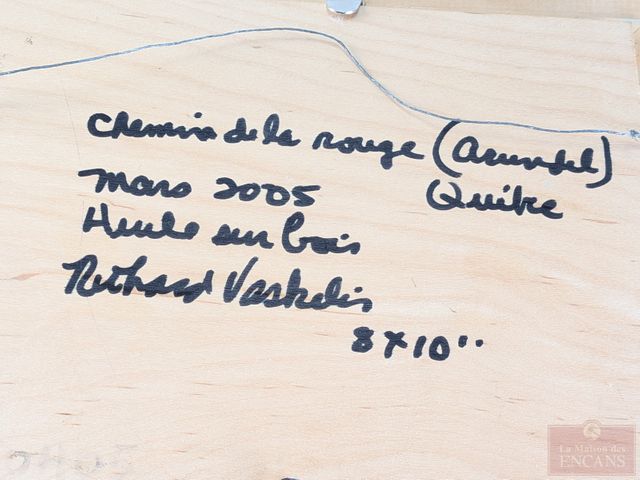 Chemin de la rouge (Arundel)
Mars 2005 Québec
Huile sur bois
Richard Vaskelis
8 x 10"
La Maison des
ENCANS